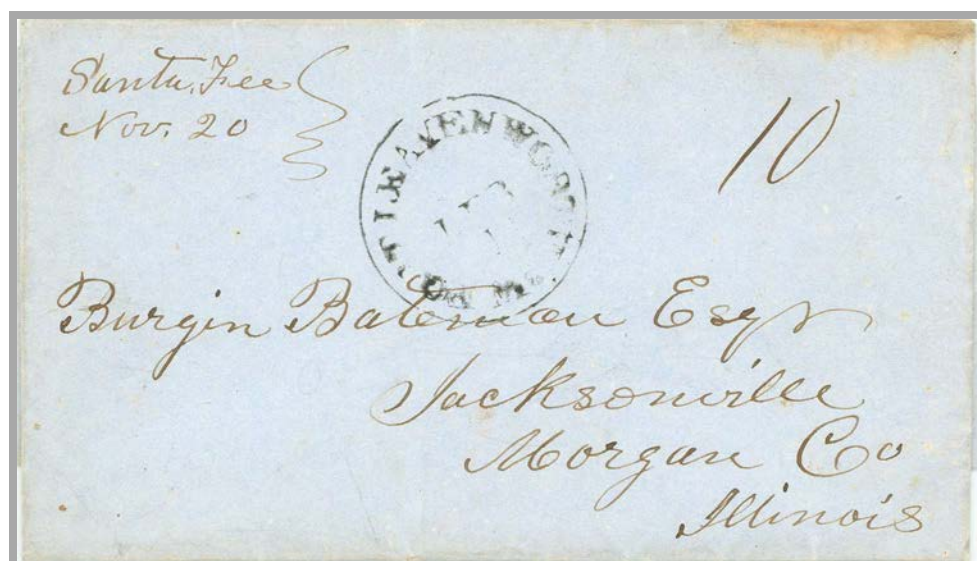 Santa Fee
Nov. 20
10
FORT LEAVENWORTH
Burgin Bateman Esqr
Jacksonville
Morgan Co
Illinois